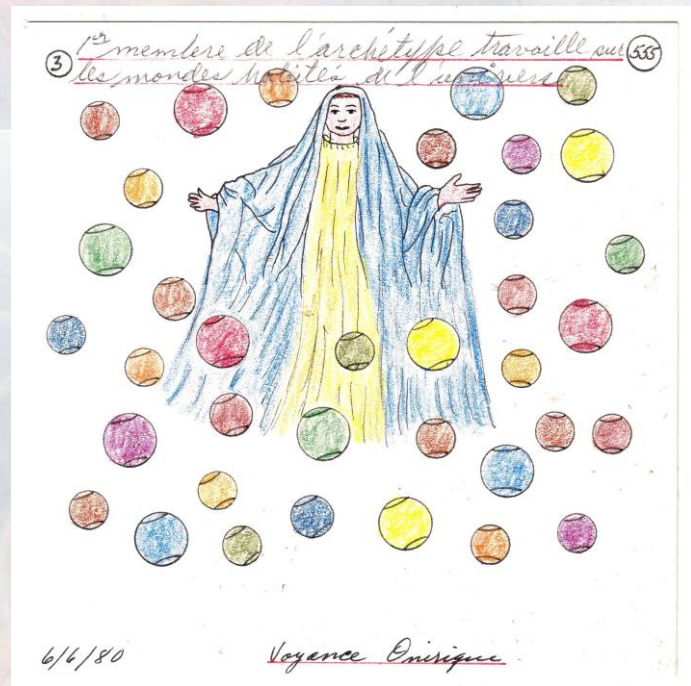 3
1er membre de l'archétype travaille sur
555
les mondes habités de l'univers
6/6/80
Voyance Onirique